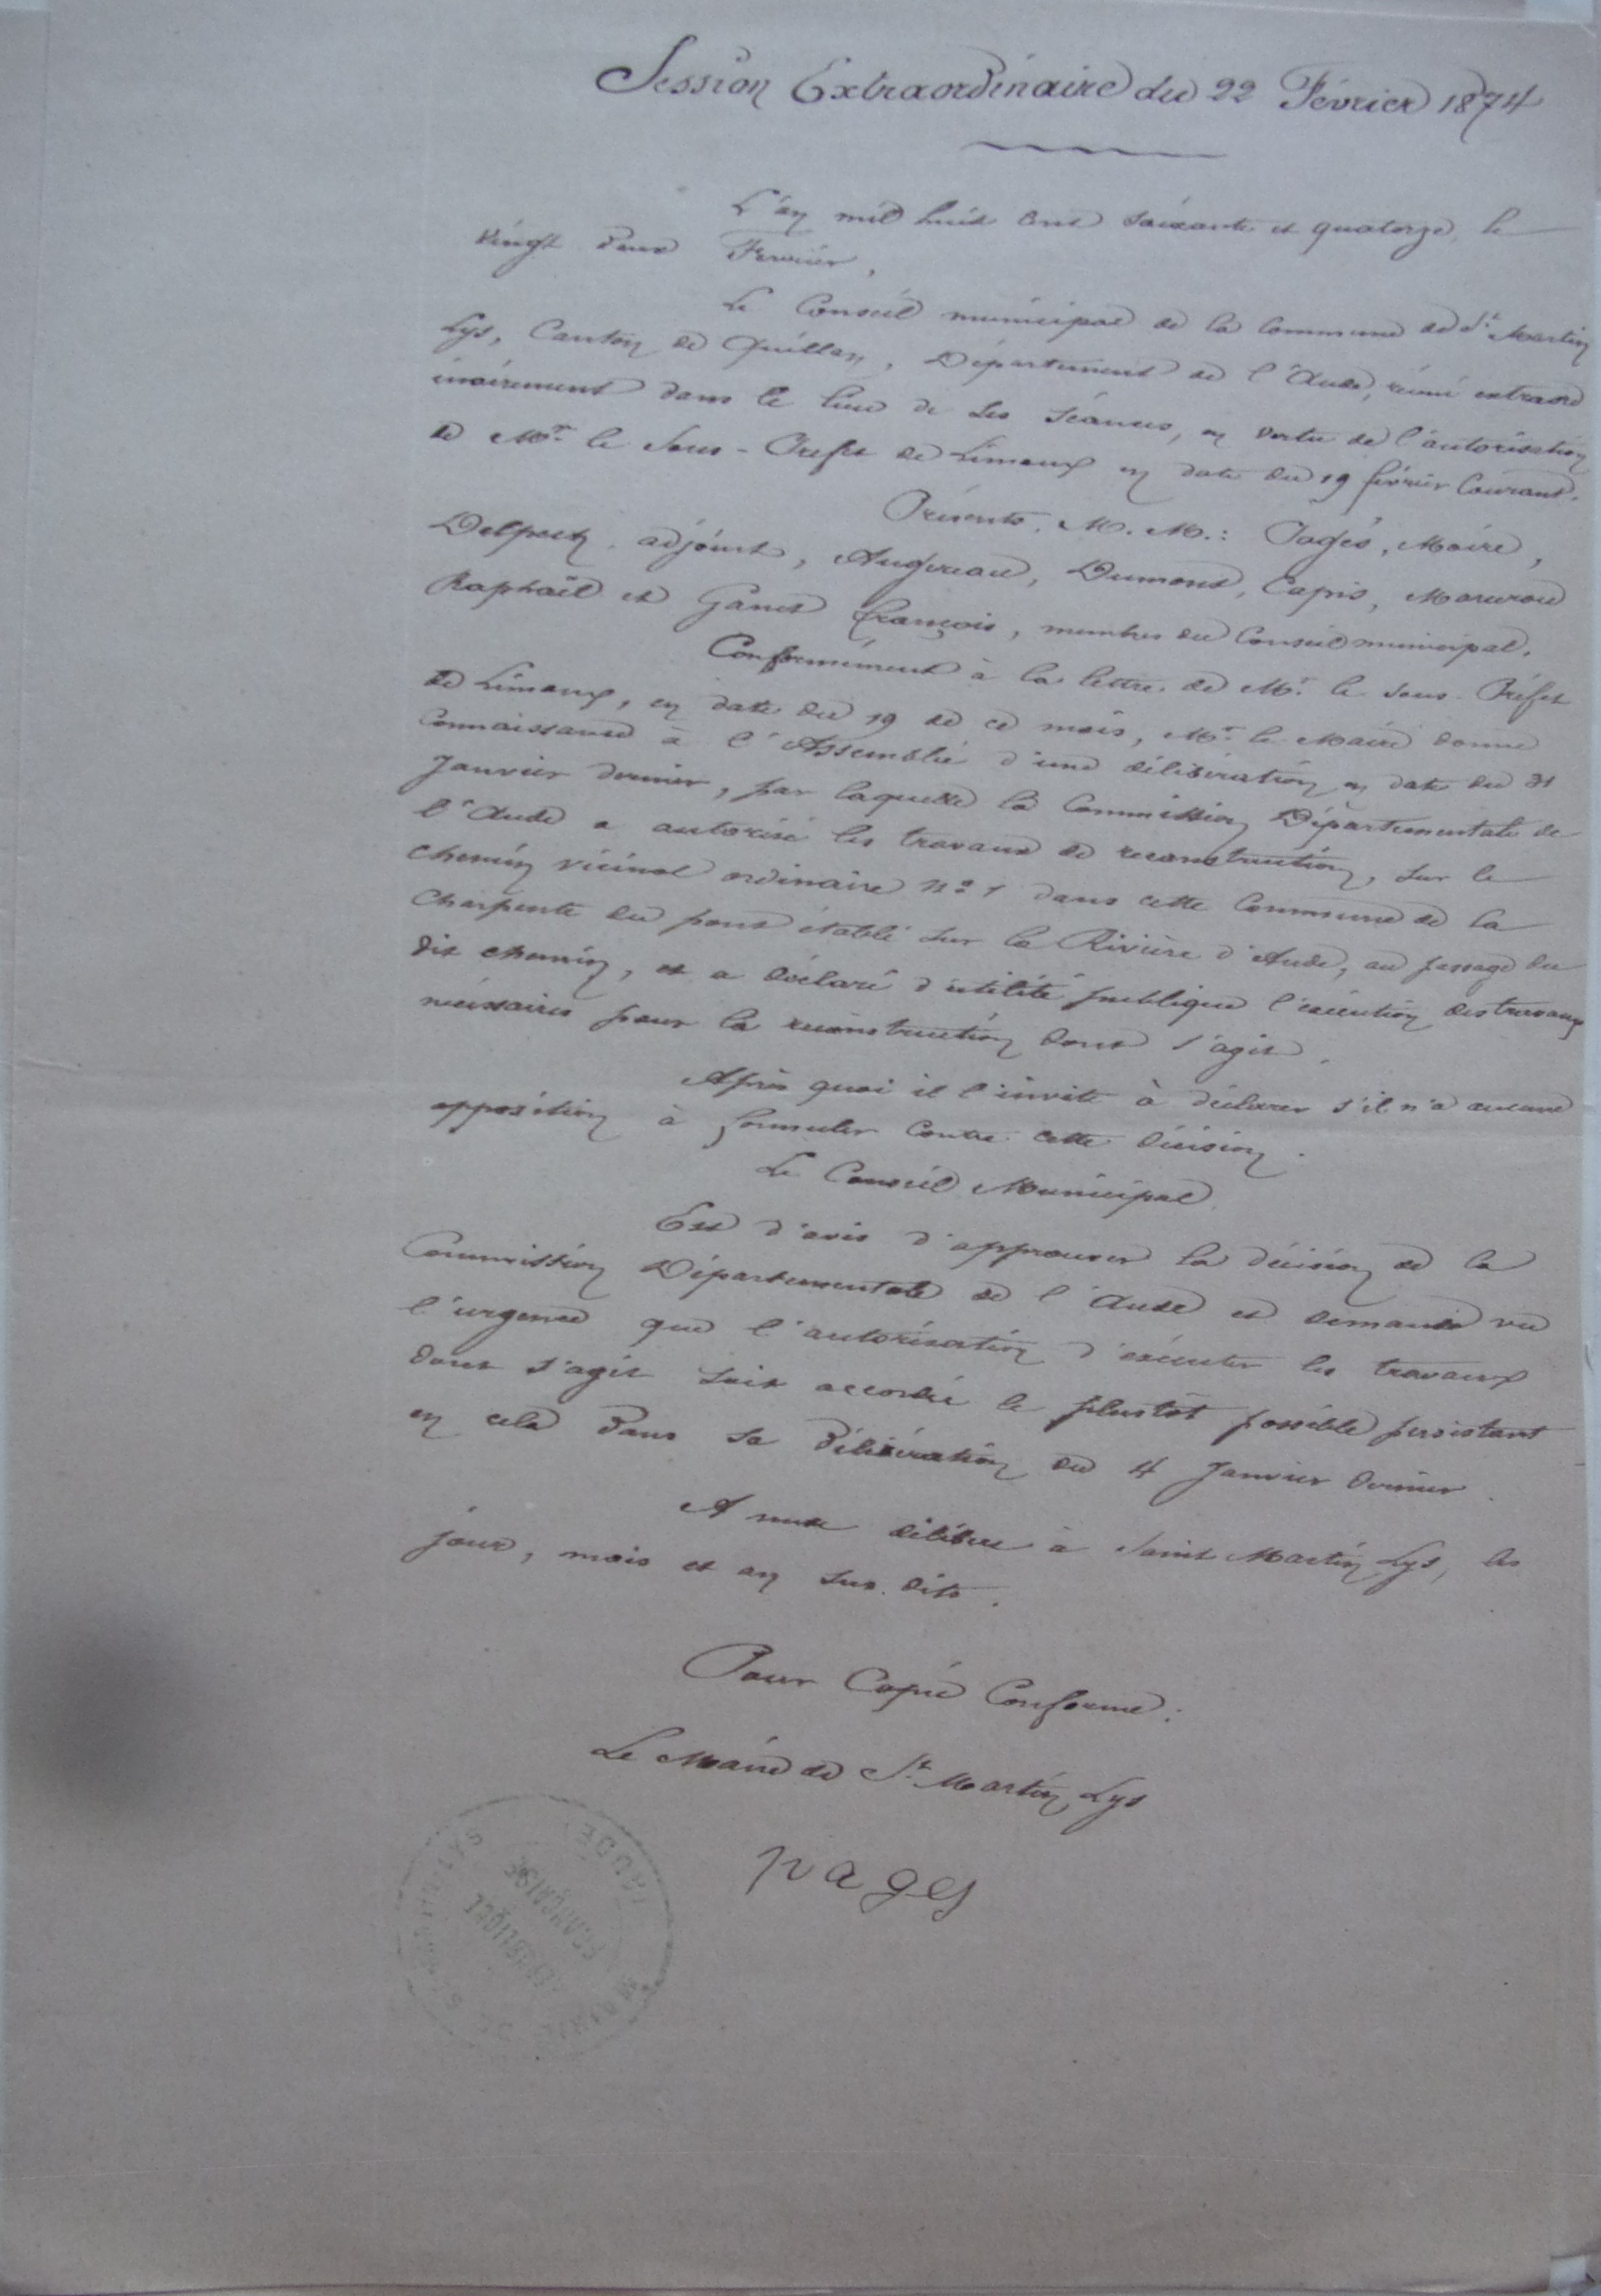 Session Extraordinaire du 22 Février 1874
L'an mil huit cent soixante et quatorze, le
vingt deux Fevrier,
Le Conseil municipal de la Commune de St Martin
Lys, Canton de Quillan, Département de l'Aude, réuni extraord
inairement dans le lieu de ses séances, en vertu de l'autorisation
de Mr le Sous-Préfet de Limoux en date du 19 février Courant.
Présents. M.M.: Pagès, Maire,
Delpech, adjoint, Augereau, Dumons, Capis,
Raphaël et François, membres du Conseil municipal.
Conformément à la lettre de Mr le Sous-Préfet
de Limoux, en date du 19 de ce mois, Mr le Maire donne
Connaissance à l'Assemblée d'une délibération en date du 31
Janvier dernier, par laquelle la Commission Départementale de
l'Aude a autorisé les travaux de reconstruction, sur le
Chemin vicinal ordinaire No 1 dans cette Commune de la
Charpente du pont établi sur la Rivière d'Aude, au passage du
dit chemin, et a déclaré d'utilité publique l'exécution des travaux
nécessaires pour la reconstruction dont s'agit.
Après quoi il l'invite à déclarer s'il n'a aucune
opposition à formuler contre cette décision.
Le Conseil Municipal
Est d'avis d'approuver la décision de la
Commission Départementale de l'Aude et demande vu
l'urgence que l'autorisation d'exécuter les travaux
dont s'agit soit accordée le plustôt possible persistant
en cela dans sa délibération du 4 Janvier dernier.
délibéré à Saint Martin Lys, les
jour, mois et an sus dits.
Pour Copie Conforme:
Le Maire de St Martin Lys
pages
MAIRIE DE ST MARTIN LYS
(AUDE)
RÉPUBLIQUE
FRANÇAISE